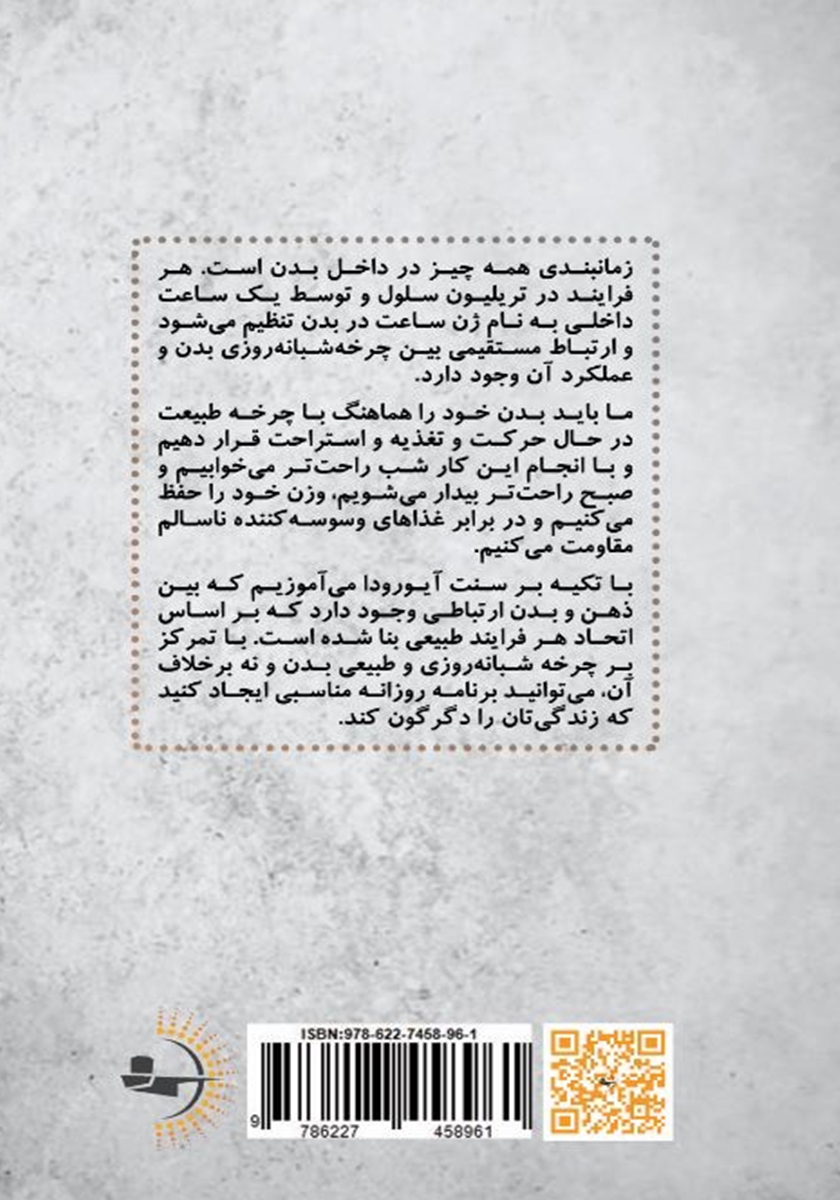 زمانبندی همه چیز در داخل بدن است. هر
فرایند در تریلیون سلول و توسط یک ساعت
داخلی به نام ژن ساعت در بدن تنظیم می‌شود
و ارتباط مستقیمی بین چرخه‌شبانه‌روزی بدن و
عملکرد آن وجود دارد.
ما باید بدن خود را هماهنگ با چرخه طبیعت
در حال حرکت و تغذیه و استراحت قرار دهیم
و با انجام این کار شب راحت‌تر می‌خوابیم و
صبح راحت‌تر بیدار می‌شویم، وزن خود را حفظ
می‌کنیم و در برابر غذاهای وسوسه‌کننده ناسالم
مقاومت می‌کنیم.
با تکیه بر سنت آیورودا می‌آموزیم که بین
ذهن و بدن ارتباطی وجود دارد که بر اساس
اتحاد هر فرایند طبیعی بنا شده است. با تمرکز
بر چرخه شبانه‌روزی و طبیعی بدن و نه برخلاف
آن، می‌توانید برنامه روزانه مناسبی ایجاد کنید
که زندگی‌تان را دگرگون کند.
ISBN:978-622-7458-96-1
9 786227 458961